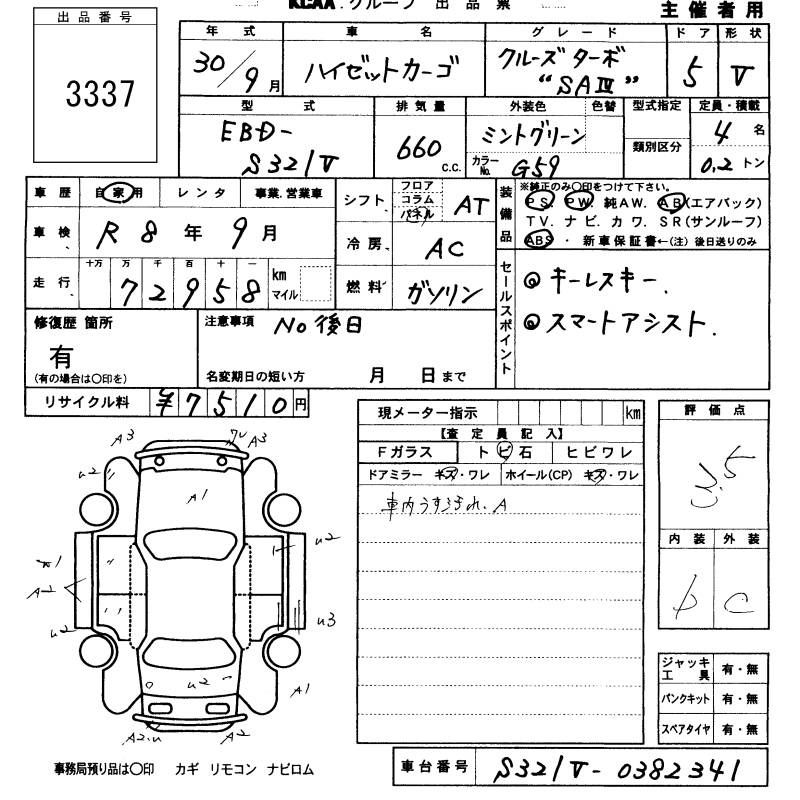 KCAA.グループ 出品票
主催者用
出品番号
3337
年式 車名 グレード ドア 形状
30/9月 ハイゼットカーゴ クルーズターボ "SAⅢ" 5 V
型式 排気量 外装色 色替 型式指定 定員・積載
EBD-S321V 660 C.C. ミントグリーン カラーNo. G59 類別区分 4名 0.2トン
車歴 自家用 レンタ 事業.営業車
車検 R8年9月
走行 十万 万 千 百 十 一
72958 km マイル
シフト フロア コラム パネル AT
冷房 AC
燃料 ガソリン
装備品 ※純正のみ○印をつけて下さい。
PS. PW. 純AW. AB(エアバック)
TV. ナビ. カワ. SR(サンルーフ)
ABS ・ 新車保証書←(注)後日送りのみ
セールスポイント
◎ キーレスキー.
◎ スマートアシスト.
修復歴 箇所
有
(有の場合は○印を)
注意事項 No後日
名変期日の短い方 月 日まで
リサイクル料 ¥7510円
現メーター指示 km
【査定員記入】
Fガラス トビ石 ヒビワレ
ドアミラー キズ・ワレ ホイール(CP) キズ・ワレ
車内うすよごれ. A
評価点
3.5
内装 外装
b C
ジャッキ工具 有・無
パンクキット 有・無
スペアタイヤ 有・無
A3 A3
u2
A1
u2
A2
u2 u3
u2
A1
A2.u A2
事務局預り品は○印 カギ リモコン ナビロム
車台番号 S321V-0382341